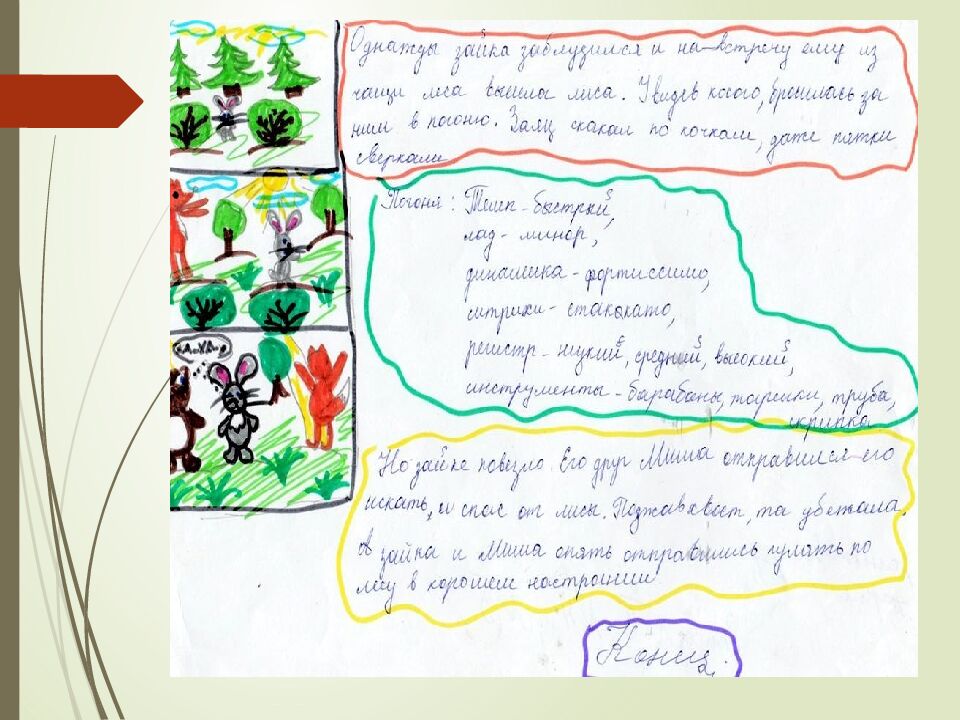 Однажды зайка заблудился и на встречу ему из
чащи леса вышла лиса. Увидев косого, бросилась за
ним в погоню. Заяц скакал по кочкам, даже пятки
сверкали
Погоня: Темп - быстрый,
лад - минор,
динамика - фортиссимо,
штрихи - стаккато,
регистр - низкий, средний, высокий,
инструменты - барабаны, тарелки, труба,
скрипка
Но зайке повезло. Его друг Миша отправился его
искать, и спас от лисы. Поджав хвост, та убежала,
А зайка и Миша опять отправились гулять по
лесу в хорошем настроении
Конец.